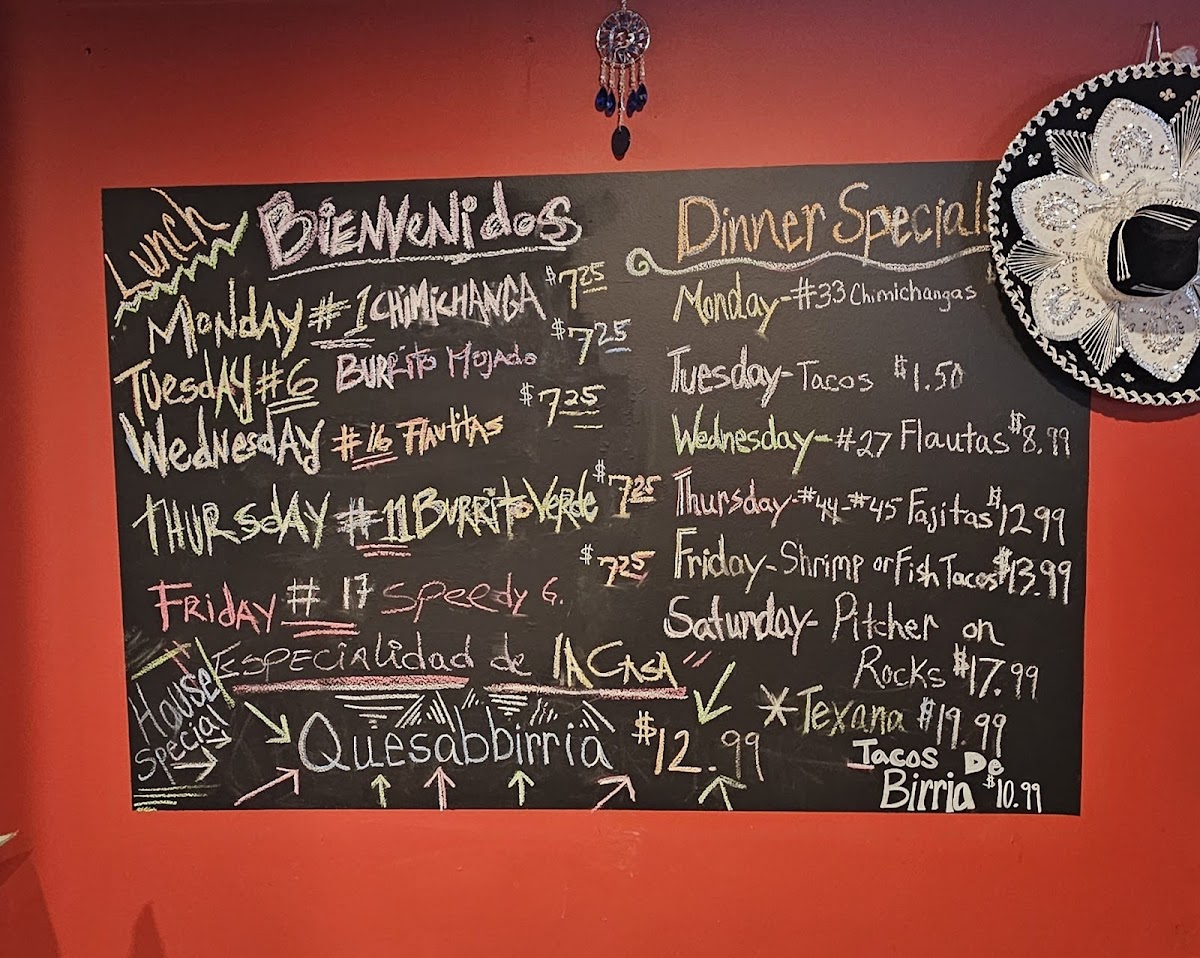 Lunch
BIENVENidos
MONDAY #1 CHIMICHANGA $7.25
TUESdAY #6 BURRITO MOJADO $7.25
WEdNESdAY #16 FLAUTITAS $7.25
THURSdAY #11 BURRITO VERDE $7.25
FRiDAY #17 SPEEDY G. $7.25
ESPECIALIdad de LA CASA"
House
Special
Quesabbirria $12.99
Dinner Special
Monday-#33 Chimichangas
Tuesday-Tacos $1.50
Wednesday-#27 Flautas $8.99
Thursday-#44-#45 Fajitas $12.99
Friday-Shrimp or Fish Tacos $13.99
Saturday-Pitcher on
Rocks $17.99
*Texana $19.99
Tacos De
Birria $10.99